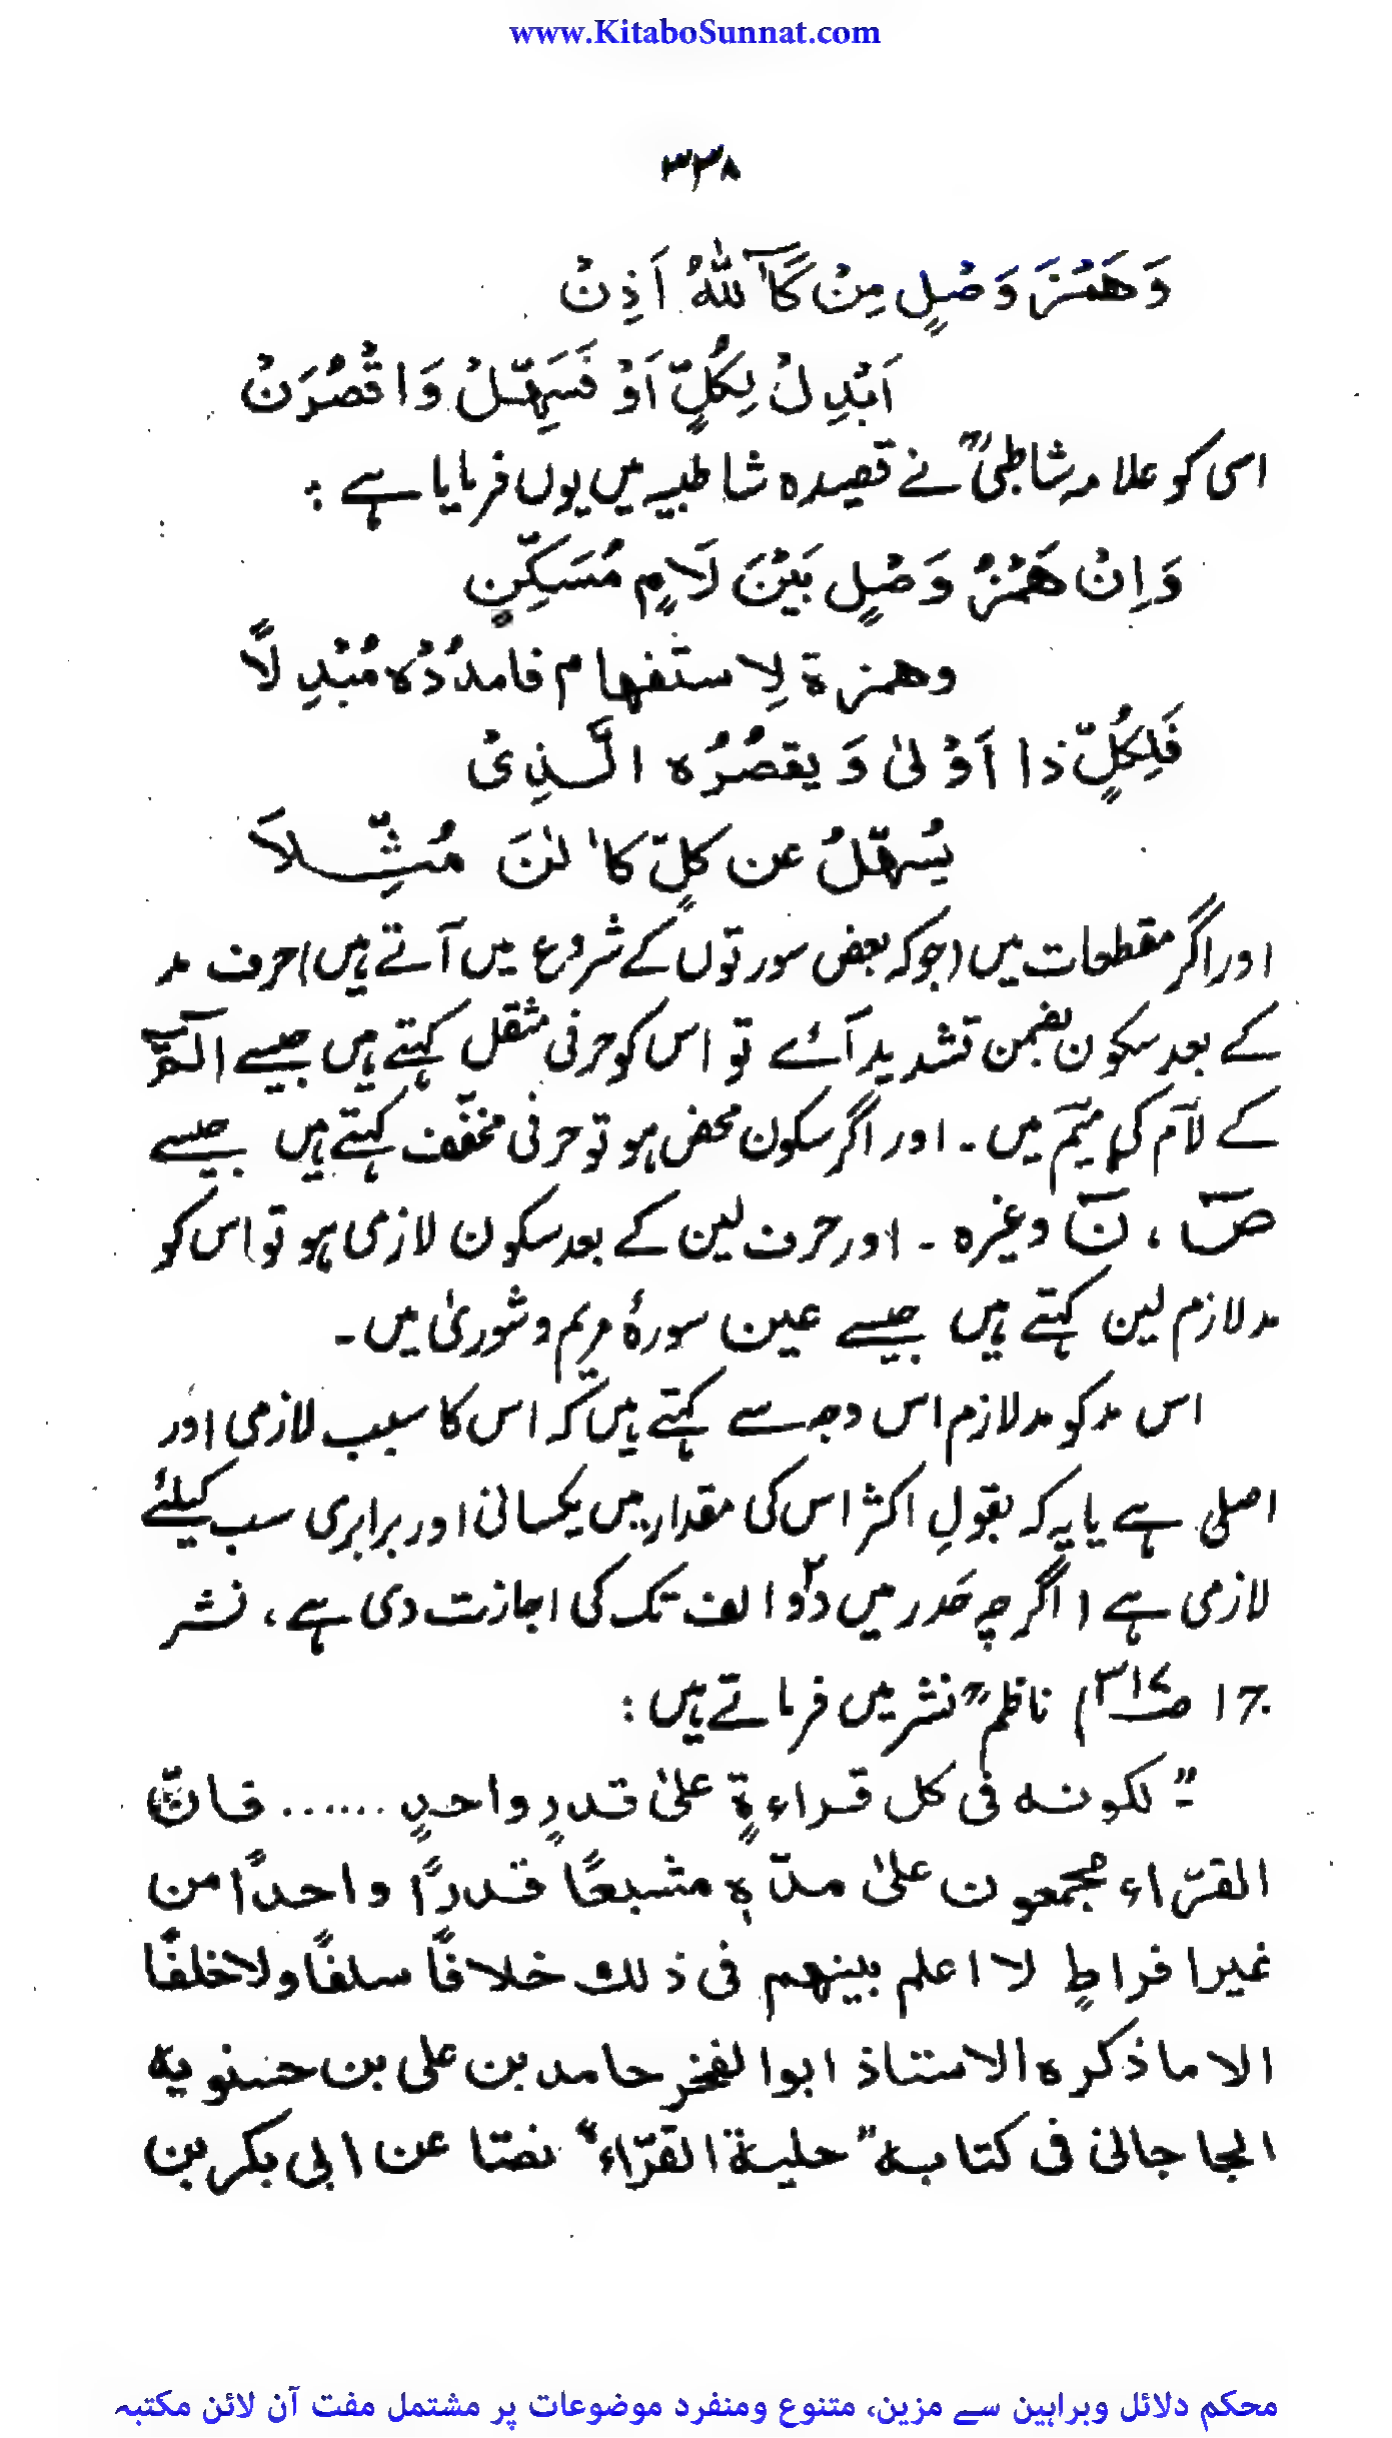 www.KitaboSunnat.com
۳۳۸
وَهَمْزَ وَصْلٍ مِنْ كَآٰللّٰهُ اَذِنْ
اَبْدِلْ لِكُلٍّ اَوْ فَسَهِّلْ وَاقْصُرَنْ
اسی کو علامہ شاطبیؒ نے قصیدہ شاطبیہ میں یوں فرمایا ہے :
وَاِنْ هَمْزُ وَصْلٍ بَيْنَ لَامٍ مُسَكِّنٍ
وهمزة لِاستفهام فامدُدْه مُبْدِلًا
فَلِكُلٍّ ذا اَوْلىٰ وَيقصُرُه الَّذِىْ
يُسهّلُ عن كلٍّ كاٰلٰنَ مُثِّلاَ
اور اگر مقطعات میں (جو کہ بعض سورتوں کے شروع میں آتے ہیں) حرف مد
کے بعد سکون بضمن تشدید آئے تو اس کو حرفی مثقل کہتے ہیں جیسے الٓمّٓ
کے لآم کی میٓم میں ۔ اور اگر سکون محض ہو تو حرفی مخفّف کہتے ہیں جیسے
صٓ ، نٓ وغیرہ ۔ اور حرف لین کے بعد سکون لازمی ہو تو اس کو
مد لازم لین کہتے ہیں جیسے عین سورۂ مریم و شوریٰ میں ۔
اس مد کو مد لازم اس وجہ سے کہتے ہیں کہ اس کا سبب لازمی اور
اصلی ہے یا یہ کہ بقولِ اکثر اس کی مقدار میں یکسانی اور برابری سب کیلئے
لازمی ہے (اگرچہ حَدر میں دو۲ الف تک کی اجازت دی ہے ، نشر
ج۱ صـ۳۱۷) ناظمؒ نشر میں فرماتے ہیں :
"لكونه فى كل قراءةٍ علىٰ قدرٍ واحدٍ ...... فانّ
القرّاء مجمعون علىٰ مدّهٖ مشبعًا قدرًا واحدًا من
غير افراطٍ لا اعلم بينهم فى ذلك خلافًا سلفًا ولا خلفًا
الا ما ذكره الاستاذ ابو الفخر حامد بن على بن حسنويه
الجاجانى فى كتابه "حلية القرّاء" نصّا عن ابى بكر بن
محکم دلائل وبراہین سے مزین، متنوع ومنفرد موضوعات پر مشتمل مفت آن لائن مکتبہ